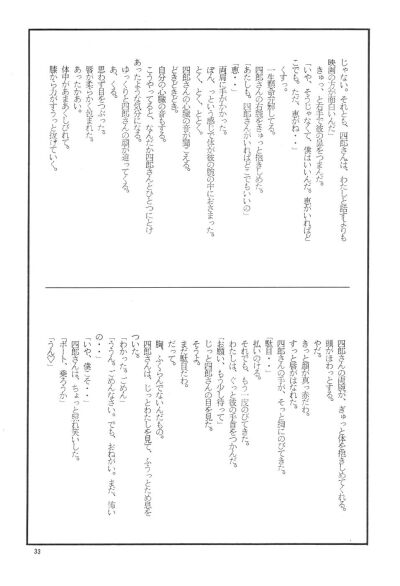 じゃない。それとも、四郎さんは、わたしと話すよりも
映画の方が面白いんだ」
きゅっ、と右手で彼の鼻をつまんだ。
「いや、そうじゃなくて、僕はいいんだ。恵がいればど
こでも。ただ、恵がね・・」
くすっ。
一生懸命弁解してる。
四郎さんの右腕をきゅっと抱きしめた。
「あたしも。四郎さんがいればどこでもいいの」
「恵・・」
両肩に手がかかった。
ぽん、っという感じで体が彼の腕の中におさまった。
とく、とく、とくく。
四郎さんの心臓の音が聞こえる。
どきどきどき。
自分の心臓の音もする。
こうやってると、なんだか四郎さんとひとつにとけ
あったような気分になる。
ゆっくりと四郎さんの顔が迫ってくる。
あ、くる。
思わず目をつぶった。
唇が柔らかく包まれた。
あったかあい。
体中があまあくしびれて。
膝から力がすうっと抜けていく。
四郎さんの両腕が、ぎゅっと体を抱きしめてくれる。
頭がほわっとする。
やだ。
きっと顔が真っ赤だわ。
すっと唇がはなれた。
四郎さんの手が、そっと胸にのびてきた。
「駄目・・」
払いのける。
それでも、もう一度のびてきた。
わたしは、ぐっと彼の手首をつかんだ。
「お願い、もう少し待って」
じっと四郎さんの目を見た。
そうよ。
まだ駄目だわ。
だって。
胸、ふくらんでないんだもの。
四郎さんは、じっとわたしを見て、ふうっとため息を
ついた。
「わかった。ごめん」
「ううん。ごめんなさい。でも、おねがい。まだ、怖い
の・・」
「いや、僕こそ・・」
四郎さんは、ちょっと照れ笑いした。
「ボート、乗ろうか」
「うん♡」
33